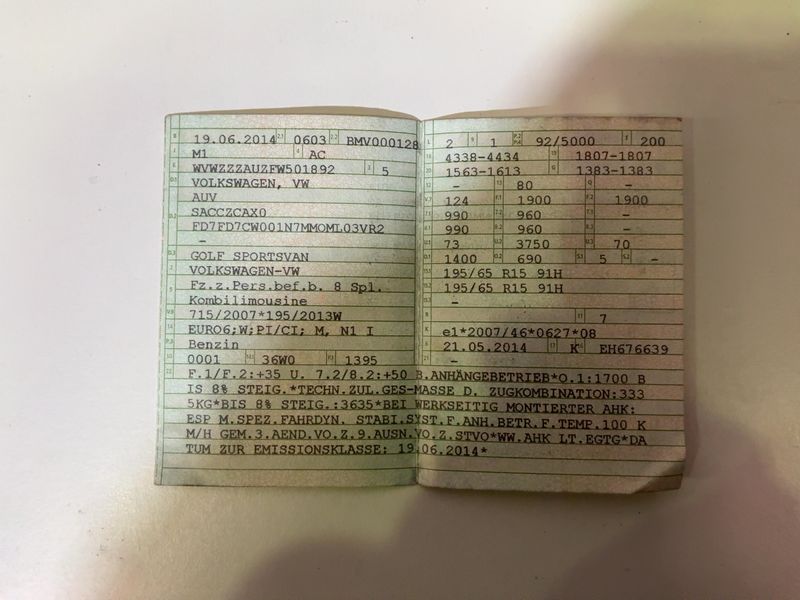 19.06.2014 0603 BMV000128
M1 AC
WVWZZZAUZFW501892 5
VOLKSWAGEN, VW
AUV
SACCZCAX0
FD7FD7CW001N7MMOML03VR2
–
GOLF SPORTSVAN
VOLKSWAGEN-VW
Fz.z.Pers.bef.b. 8 Spl.
Kombilimousine
715/2007*195/2013W
EURO6;W;PI/CI; M, N1 I
Benzin
0001 36W0 1395
2 1 92/5000 200
4338-4434 1807-1807
1563-1613 1383-1383
– 80 –
124 1900 1900
990 960 –
990 960 –
73 3750 70
1400 690 5 –
195/65 R15 91H
195/65 R15 91H
–
7
e1*2007/46*0627*08
21.05.2014 K EH676639
–
F.1/F.2:+35 U. 7.2/8.2:+50 B.ANHÄNGEBETRIEB*O.1:1700 B
IS 8% STEIG.*TECHN.ZUL.GES-MASSE D. ZUGKOMBINATION:333
5KG*BIS 8% STEIG.:3635*BEI WERKSEITIG MONTIERTER AHK:
ESP M.SPEZ.FAHRDYN. STABI.SYST.F.ANH.BETR.F.TEMP.100 K
M/H GEM.3.AEND.VO.Z.9.AUSN.VO.Z.STVO*WW.AHK LT.EGTG*DA
TUM ZUR EMISSIONSKLASSE: 19.06.2014*